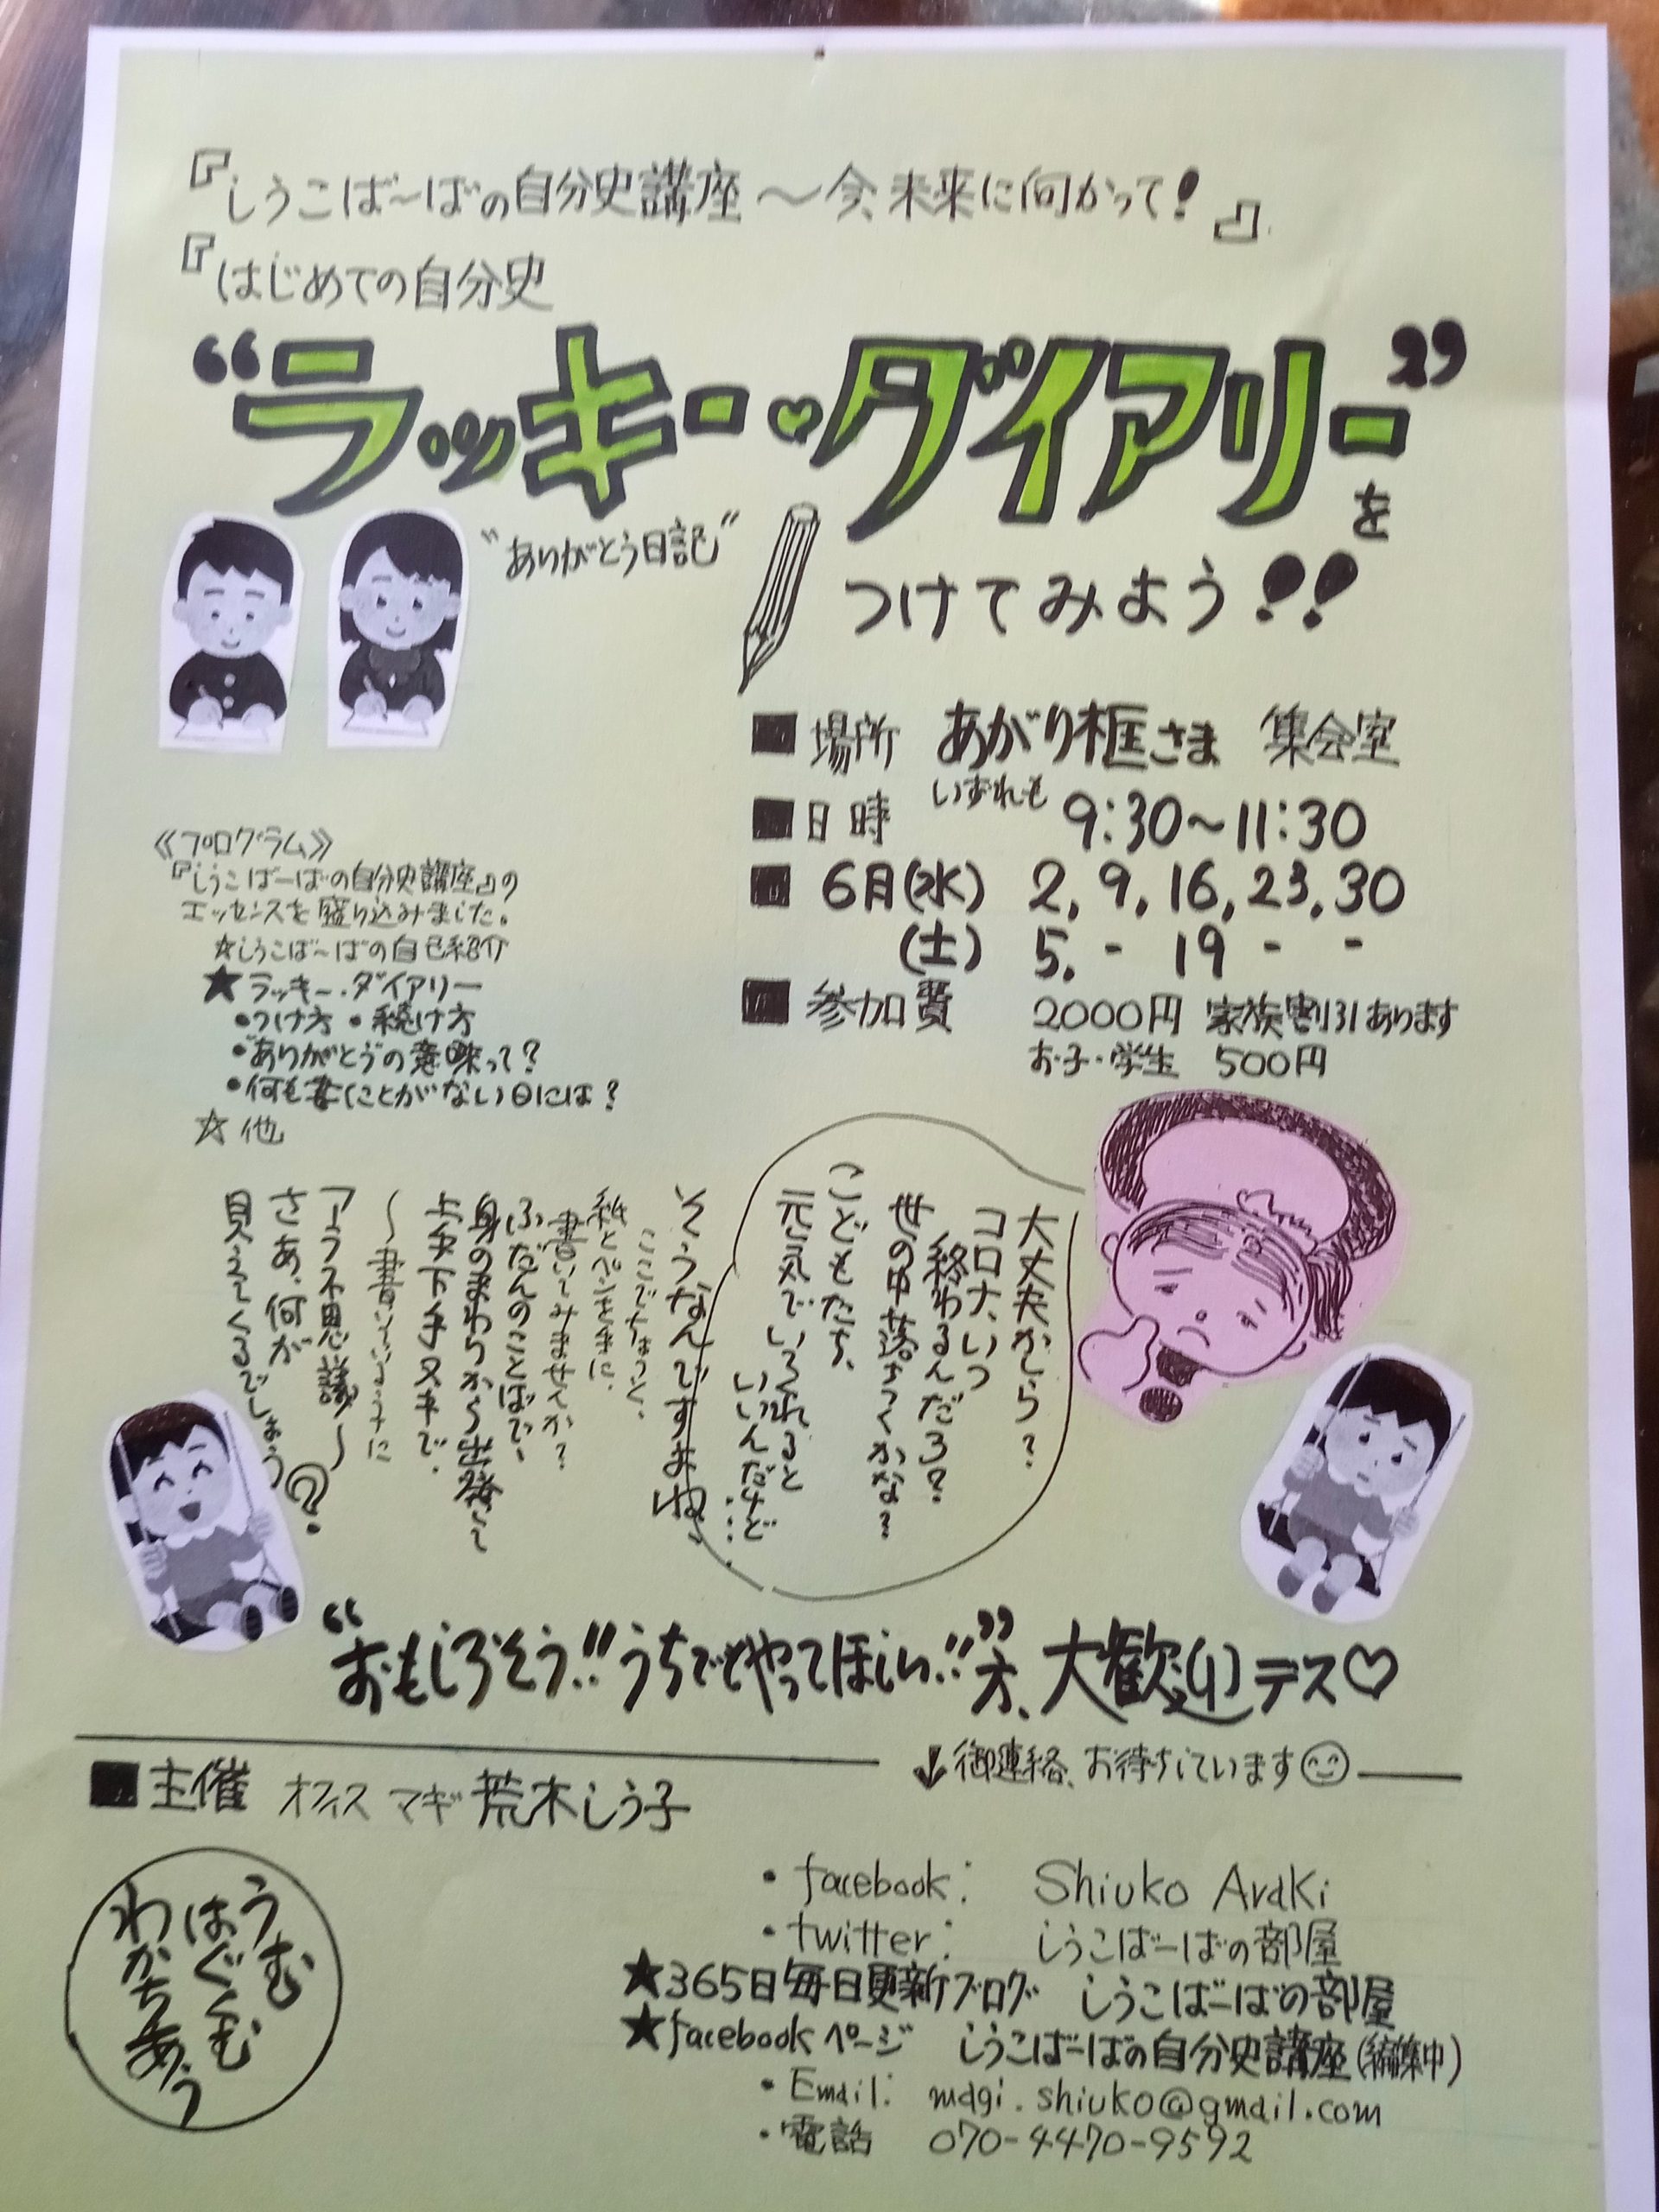 『しうこば～ばの自分史講座～今、未来に向かって！』
『はじめての自分史
“ラッキー・ダイアリー”を
“ありがとう日記”
つけてみよう！！
■場所 あがり框さま 集会室
■日時 いずれも 9:30～11:30
■6月(水) 2, 9, 16, 23, 30
(土) 5. - 19 - -
■参加費 2000円 家族割引あります
お子・学生 500円
《プログラム》
『しうこばーばの自分史講座』の
エッセンスを盛り込みました。
☆しうこば～ばの自己紹介
★ラッキー・ダイアリー
・つけ方 ・続け方
・“ありがとう”の意味って？
・何も書くことがない日には？
☆他
大丈夫かしら？
コロナ、いつ
終わるんだろ？
世の中落ちつくかな？
こどもたち、
元気でいられると
いいんだけど……
そうなんですよね、
ここでちょっと、
紙とペンをきに、
書いてみませんか？
ふだんのことばで、
身のまわりから出発～
上手下手ヌキで、
～書いているうちに
アラ不思議～
さあ、何が
見えてくるでしょう？
“おもしろそう!!うちでもやってほしい!!”方、大歓迎デス♡
↓御連絡、お待ちしています
■主催 オフィス マギ 荒木しう子
うむ
はぐくむ
わかちあう
・facebook: Shiuko Araki
・twitter: しうこばーばの部屋
★365日毎日更新ブログ しうこばーばの部屋
★facebookページ しうこばーばの自分史講座(編集中)
・Email: magi.shiuko@gmail.com
・電話 070-4470-9592